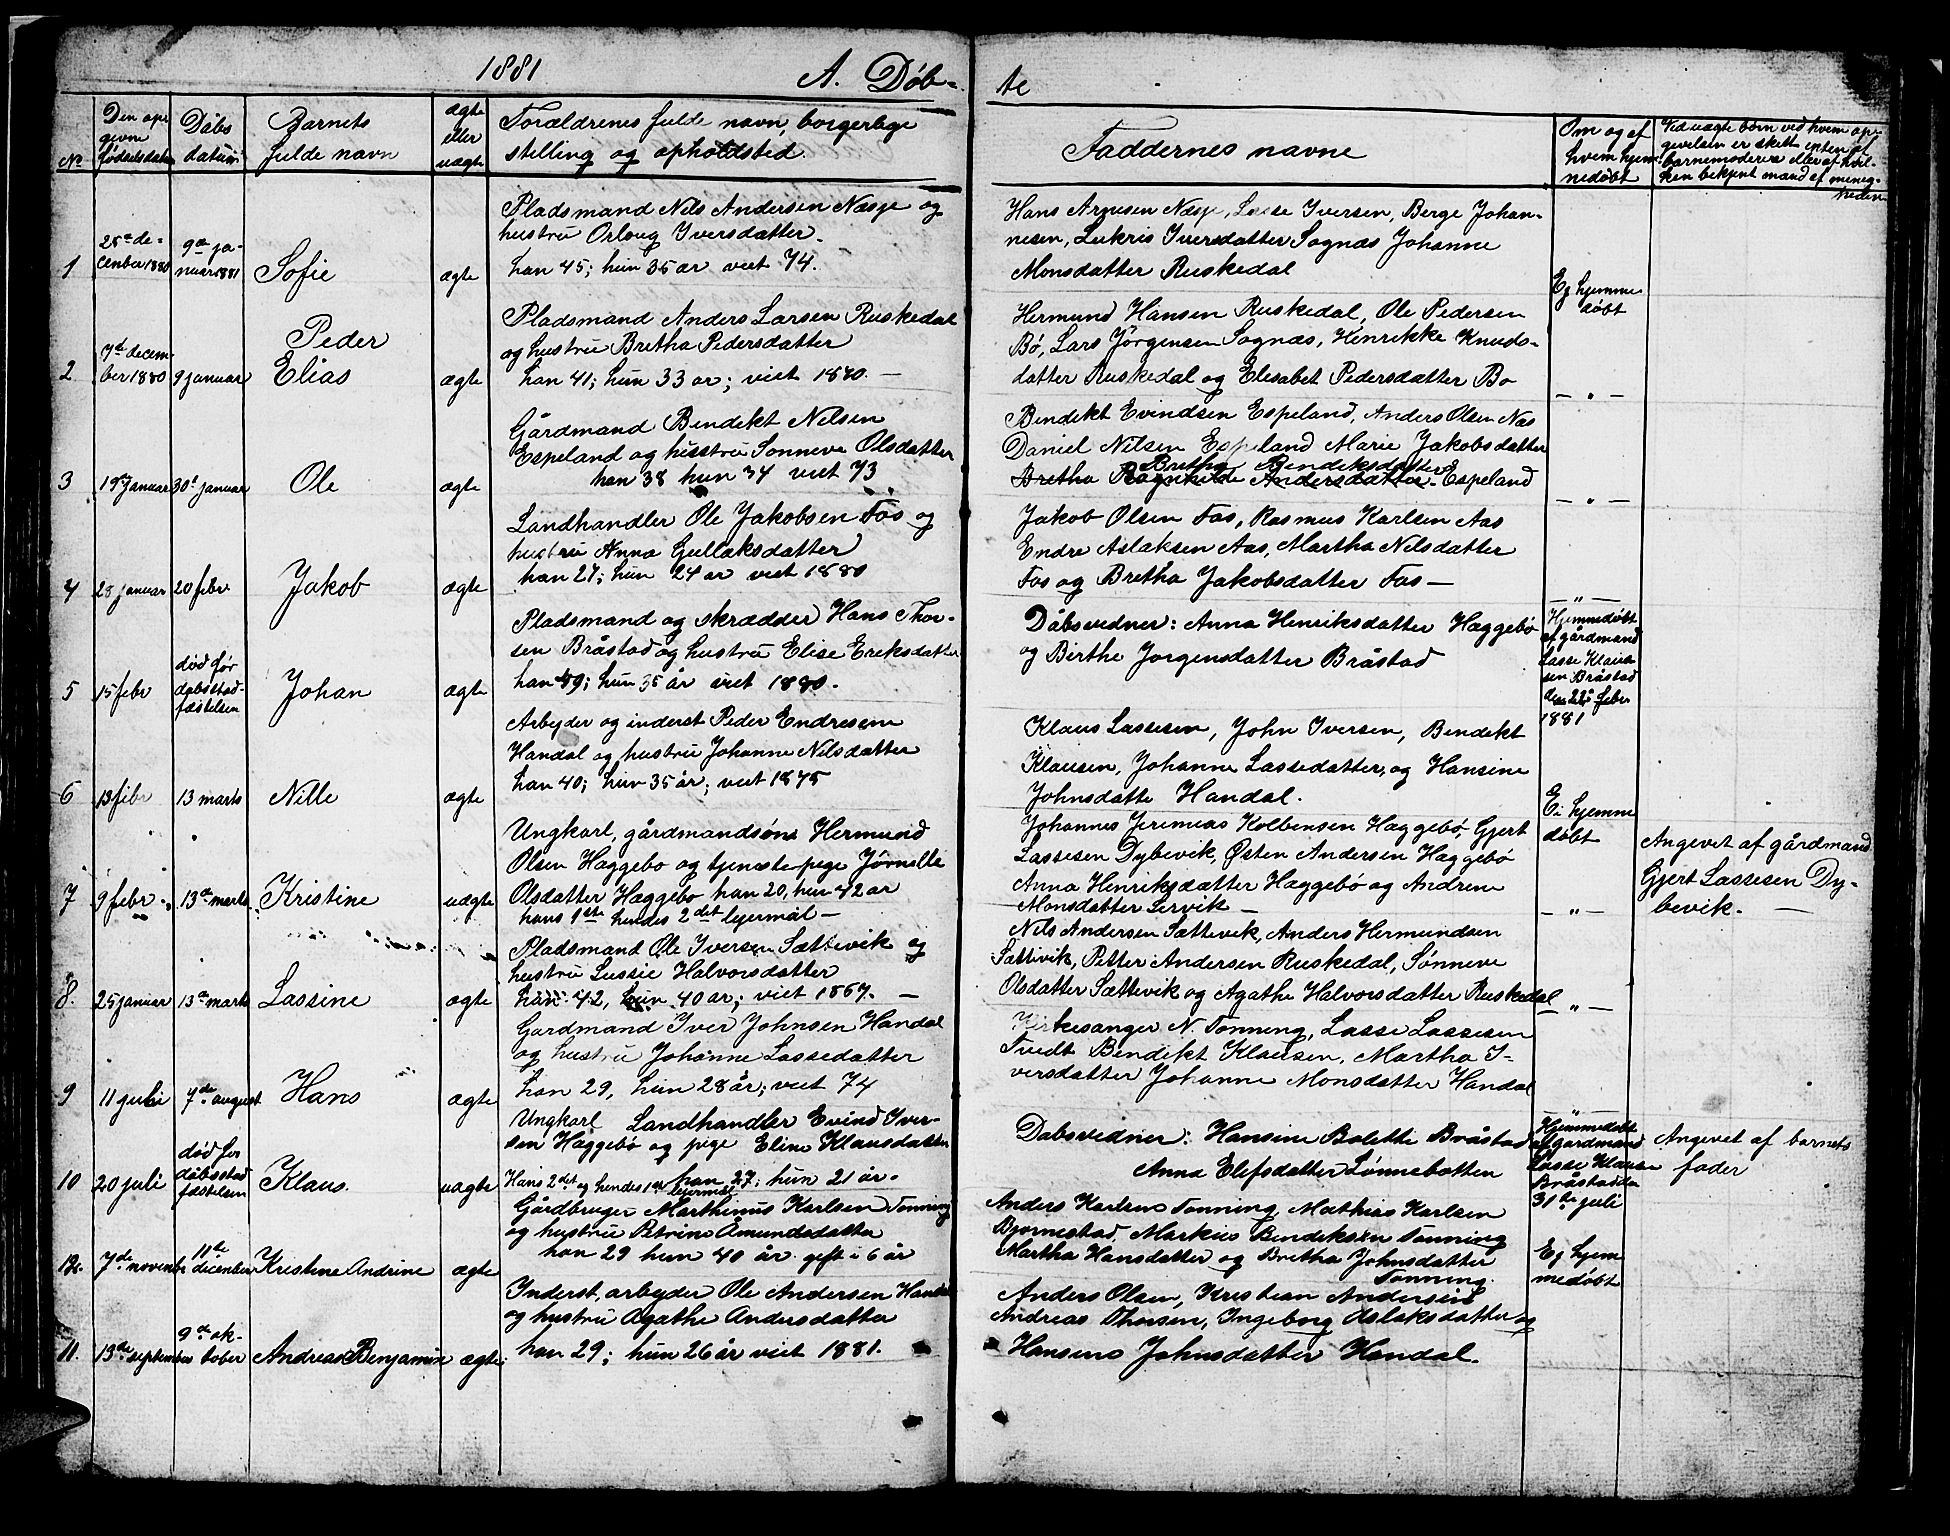 1881 A. Døb- te
No Den opgivne fødselsdatum Dåbs datum Barnets fulde navn ægte eller uægte Forældrenes fulde navn, borgerlige stilling og opholdsted.
Faddernes navne
Om og af hvem hjemmedøbt
Ved uægte børn ved hvem opgivelsen er skelt enten af barnemoderen eller af hvilken bekjent mand af menigheden
Pladsmand Nils Andersen Næsje og
hustru Orloug Iversdatter.
1 28de december 1880 9de januar 1881 Sofie ægte han 45; hun 35 ar viet 74.
Hans Arnesen Næsje, Lasse Iversen, Berge Johan-
nesen, Lukris Iversdatter Sognæs Johanne
Monsdatter Ruskedal
Ej hjemme
døbt
Pladsmand Anders Larsen Ruskedal
og hustru Bretha Pedersdatter
2 7de december 1880 9 januar Peder Elias ægte han 41; hun 33 ar; viet 1880. —
Hermund Hansen Ruskedal, Ole Pedersen
Bø, Lars Jörgensen Sognæs, Henrikke Knuds-
datter Ruskedal og Elisabet Pedersdatter Bø
— " —
Gårdmand Bendikt Nilsen
Espeland og hustru Sonneve Olsdatter
3 19 januar 30te januar Ole ægte han 38 hun 34 viet 73
Bendikt Evindsen Espeland, Anders Olsen Næs
Daniel Nilsen Espeland Marie Jakobsdatter
Bretha Bendiksdatter
Bretha Ragnhilde Andersdatter Espeland
— " —
Landhandler Ole Jakobsen Fos og
hustru Anna Gullaksdatter
4 28 januar 20 febr Jakob ægte han 27; hun 24 ar viet 1880
Jakob Olsen Fos, Rasmus Karlsen Aas
Endre Aslaksen Aas, Martha Nilsdatter
Fos og Bretha Jakobsdatter Fos —
— " —
Pladsmand og skrædder Hans Thor-
sen Bråstad og hustru Elise Eriksdatter
5 15 febr død før dåbsstadfæstelsen Johan ægte han 49; hun 35 år viet 1880.
Dåbsvidner: Anna Henriksdatter Hæggebø
og Birthe Jorgensdatter Bråstad
Hjemmedøbt
af gårdmand
Lasse Klau-
sen Bråstad
den 22de febr
1881
Arbeyder og inderst Peder Endresen
Handal og hustru Johanne Nilsdatter
6 13 febr 13 marts Nille ægte han 40; hun 35 år; viet 1875
Klaus Lassesen, John Iversen, Bendikt
Klausen, Johanne Lassedatter, og Hansine
Johnsdatte Handal.
Ei hjemme
døbt
Ungkarl, gårdmandsøns Hermund
Olsen Hæggebo og tjeneste-pige Jørnille
7 9 febr. 13de marts Kristine uægte Olsdatter Hæggebo han 20, hun 42 ar
hans 1ste hendes 2det lejermål —
Johannes Jeremias Kolbensen Hæggebø, Gjert
Lassesen Dybevik, Østen Andersen Hæggebø
Anna Henriksdatter Hæggebø og Andrine
Monsdatter Lervik —
— " —
Angevet af gårdmand
Gjert Lassesen Dy-
bevik. —
Pladsmand Ole Iversen Sættevik og
hustru Lussie Halvorsdatter
8. 25 januar 13de marts Lassine ægte han 42, hun 40 ar; viet 1867. —
Nils Andersen Sættevik, Anders Hermundsen
Sættivik, Petter Andersen Ruskedal, Sønneve
Olsdatter Sættevik og Agathe Halvorsdatter Ruskedal
— " —
Gårdmand Iver Johnsen Handal
og hustru Johanne Lassedatter
9 11 juli 7de august Hans ægte han 29, hun 28 år; viet 74
Kirkesanger N. Tonning, Lasse Lassesen
Tvedt Bendikt Klausen, Martha I-
versdatter Johanne Monsdatter Handal
— " —
Ungkarl Landhandler Evind Iver-
sen Hæggebø og pige Eline Klausdatter
10 20 juli død før dåbsstadfæstelsen Klaus. uægte Hans 2det og hendes 1ste lejermål han 27; hun 21 år.
Dabsvidner: Hansine Bolette Bråstad
Anna Elefsdatter Lønnebotten
Hjemmedøbt
af gårdmand
Lasse Klause
Bråstad
31te juli
Angevet af barnets
fader
Gårdbruger Marthinus Karlsen Tonning
og hustru Petrine Amundsdatter
12. 7de november 11te december Kristine Andrine ægte han 29 hun 40 år gift i 6 år
Anders Karlsen Tonning, Mathias Karlsen
Bjørnestad, Markus Bendiksen Tonning
Martha Hansdatter og Bretha Johnsdatter
Tonning.
Ej hjem
medøbt
Inderst, arbeyder Ole Andersen Handal
og hustru Agathe Andersdatter
11. 13de september 9de oktober Andreas Benjamin ægte han 29; hun 26 år viet 1881.
Anders Olsen, Kristian Andersen
Andreas Thorsen, Ingeborg Aslaksdatter og
Hansine Johnsdatter Handal.